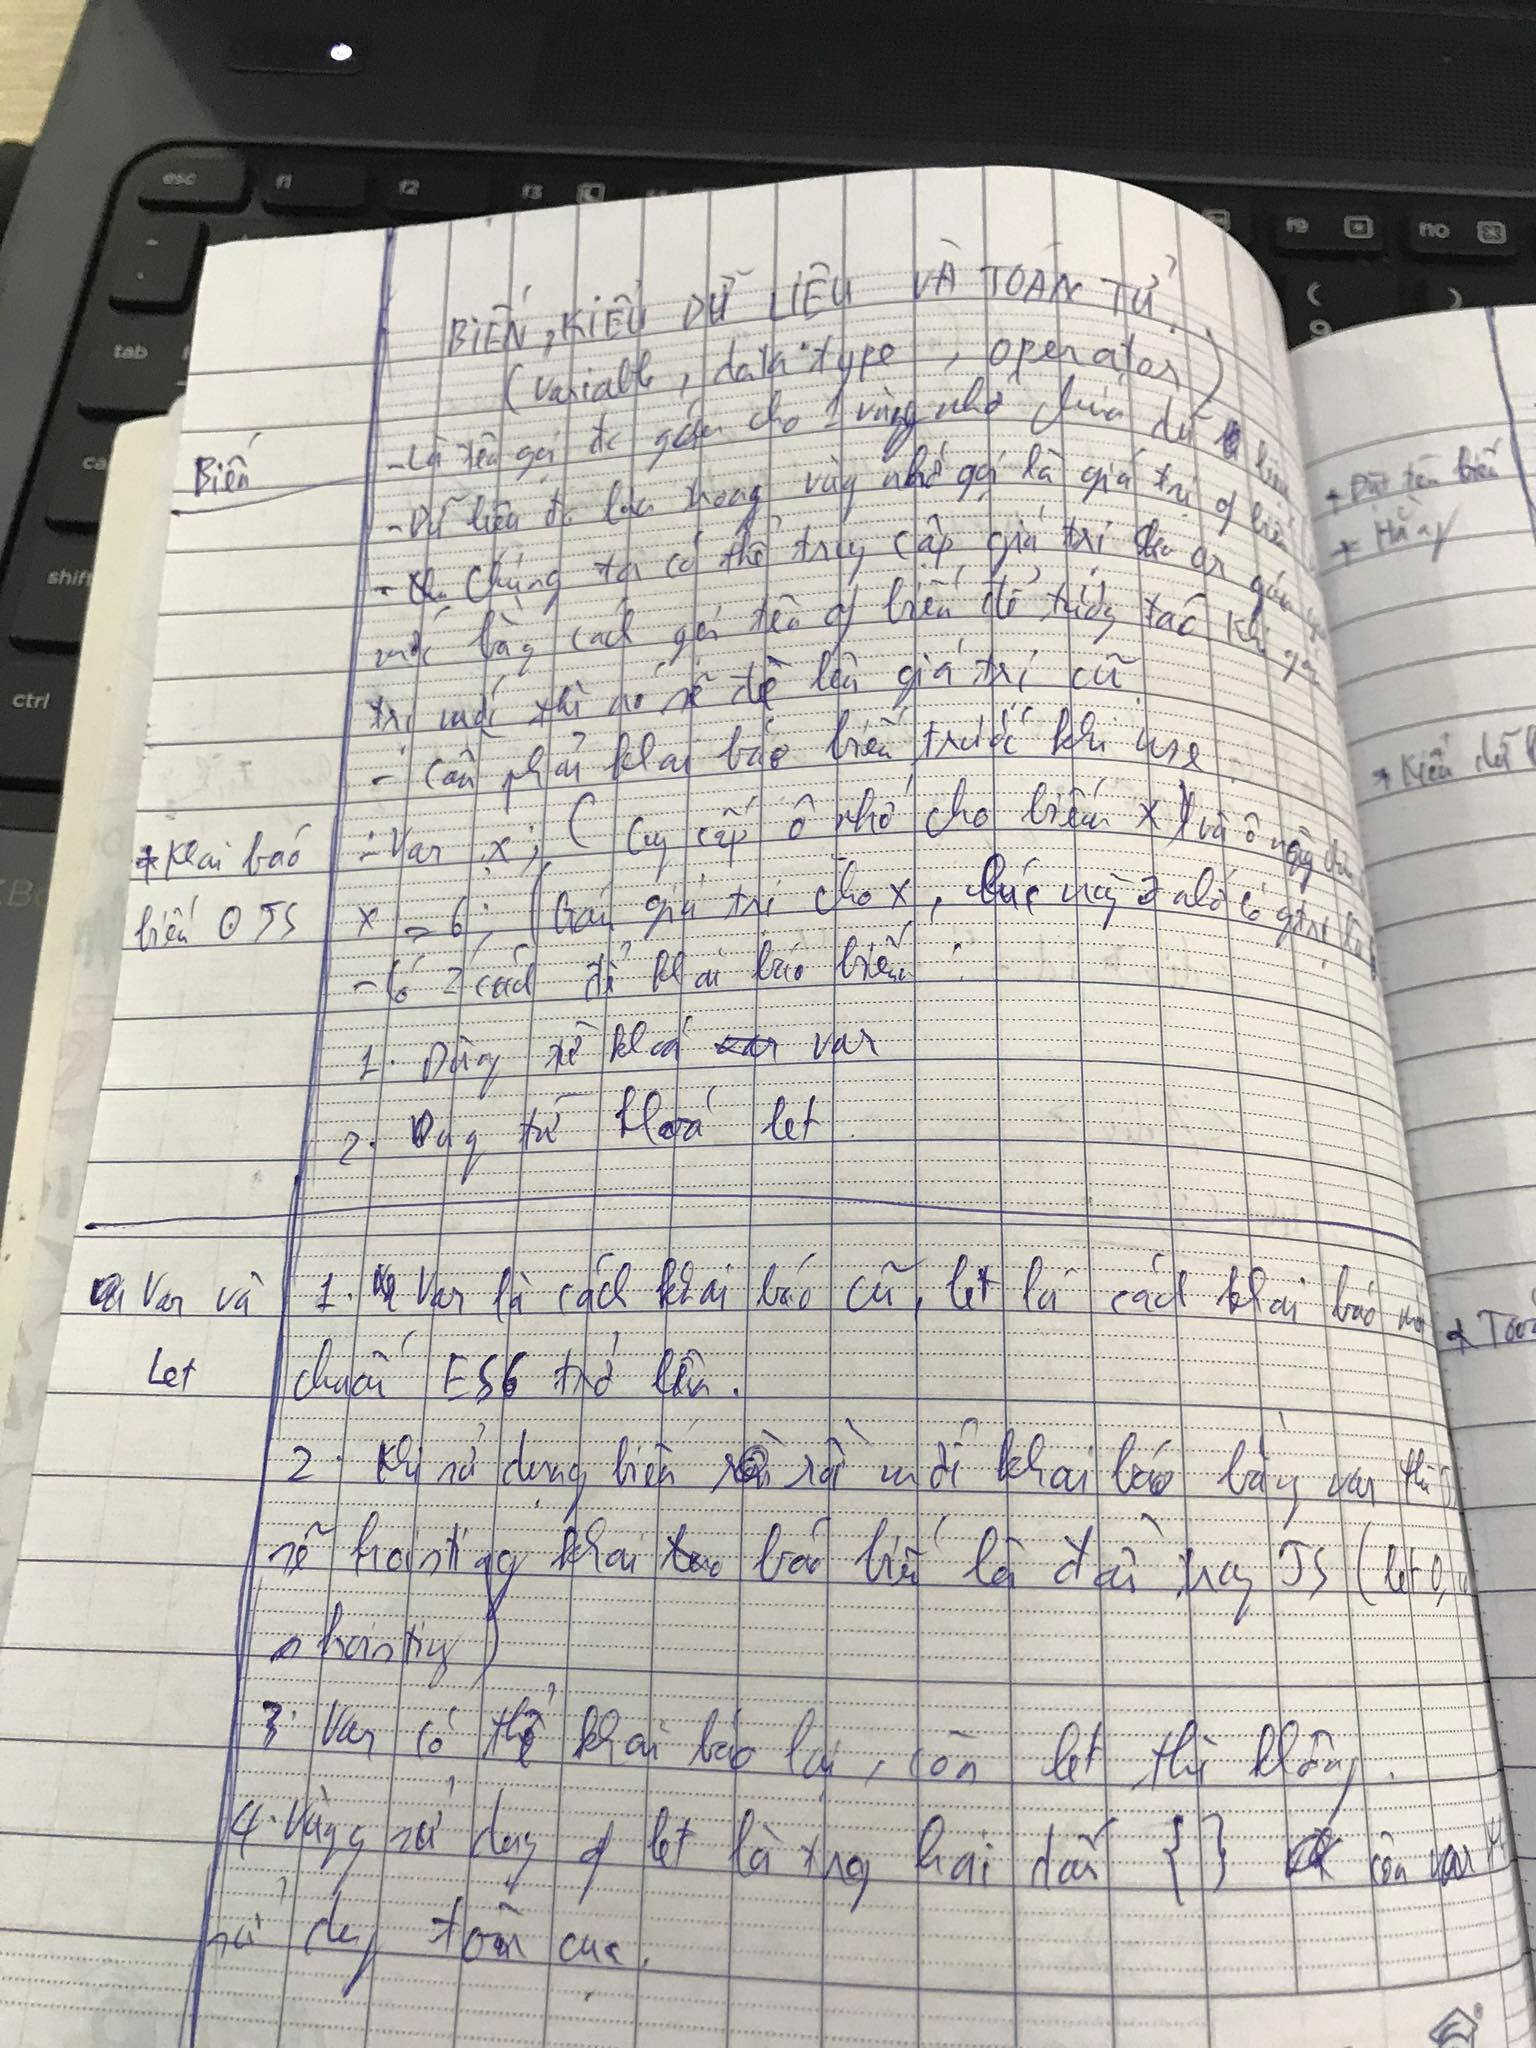 BIẾN, KIỂU DỮ LIỆU VÀ TOÁN TỬ.
(variable, data type, operator)
Biến
- Là tên gọi đc gán cho 1 vùng nhớ chứa dữ liệu
- Dữ liệu đc lưu trong vùng nhớ gọi là giá trị of biến
- Chúng ta có thể truy cập giá trị or gán
mới bằng cách gọi tên of biến để tương tác khi gán
trị mới thì nó sẽ đè lên giá trị cũ.
- Cần phải khai báo biến trước khi use
* Khai báo
biến Ở JS
- Var x; (Cung cấp ô nhớ cho biến x) và ô này
x = 6; (Gán giá trị cho x, lúc này ô nhớ có gtrị là 6
- Có 2 cách để khai báo biến:
1. Dùng từ khoá var
2. Dùng từ khoá let.
Var và
Let
1. Var là cách khai báo cũ, let là cách khai báo
chuẩn ES6 trở lên.
2. Khi sử dụng biến rồi mới khai báo bằng var thì
sẽ hoisting khai báo biến lên đầu trang JS (let
hoisting)
3. Var có thể khai báo lại, còn let thì không.
4. Vùng sử dụng of let là trong hai dấu { } còn var
sử dụng toàn cục.
* Đặt tên biến
* Hằng
* Kiểu dữ
esc
f1
f2
f3
f9
tab
shift
ctrl